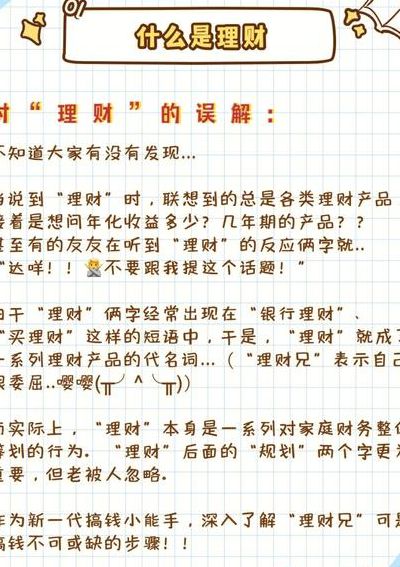 01
什么是理财
对“理财”的误解：
不知道大家有没有发现...
当说到“理财”时，联想到的总是各类理财产品
接着是想问年化收益多少？几年期的产品？？
甚至有的友友在听到“理财”的反应俩字就..
“达咩！！🙅不要跟我提这个话题！”
由于“理财”俩字经常出现在“银行理财”、
“买理财”这样的短语中，于是，“理财”就成了
一系列理财产品的代名词...（“理财兄”表示自己
很委屈..嘤嘤(╥╯^╰╥)）
而实际上，“理财”本身是一系列对家庭财务整体
筹划的行为。“理财”后面的“规划”两个字更为
重要，但老被人忽略。
作为新一代搞钱小能手，深入了解“理财兄”可是
搞钱不可或缺的步骤！！